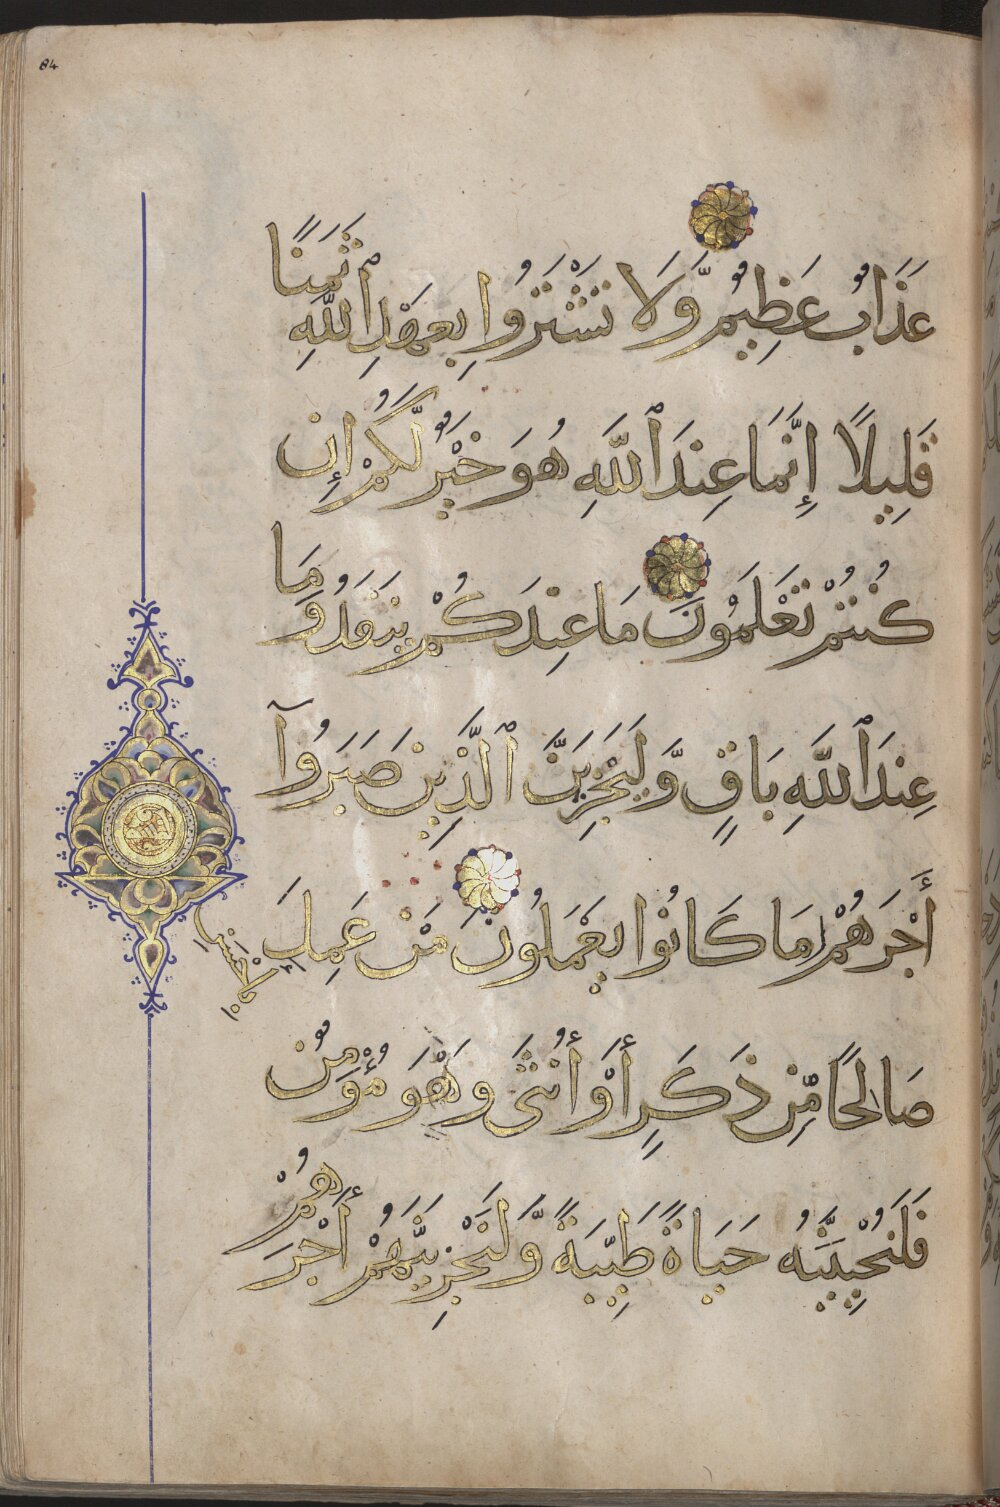 84
عَذَابٌ عَظِيمٌ وَّلَا تَشْتَرُوا بِعَهْدِ ٱللَّهِ ثَمَنًا
قَلِيلًا إِنَّمَا عِندَ ٱللَّهِ هُوَ خَيْرٌ لَّكُمْ إِن
كُنتُمْ تَعْلَمُونَ مَا عِندَكُمْ يَنفَدُ وَمَا
عِندَ ٱللَّهِ بَاقٍ وَّلَيَجْزِيَنَّ ٱلَّذِينَ صَبَرُوٓا
أَجْرَهُمْ مَا كَانُوا يَعْمَلُونَ مَنْ عَمِلَ
بِأَحْسَنِ
صَالِحًا مِّن ذَكَرٍ أَوْ أُنثَىٰ وَهُوَ مُؤْمِنٌ
فَلَنُحْيِيَنَّهُ حَيَاةً طَيِّبَةً وَّلَنَجْزِيَنَّهُمْ أَجْرَهُمْ